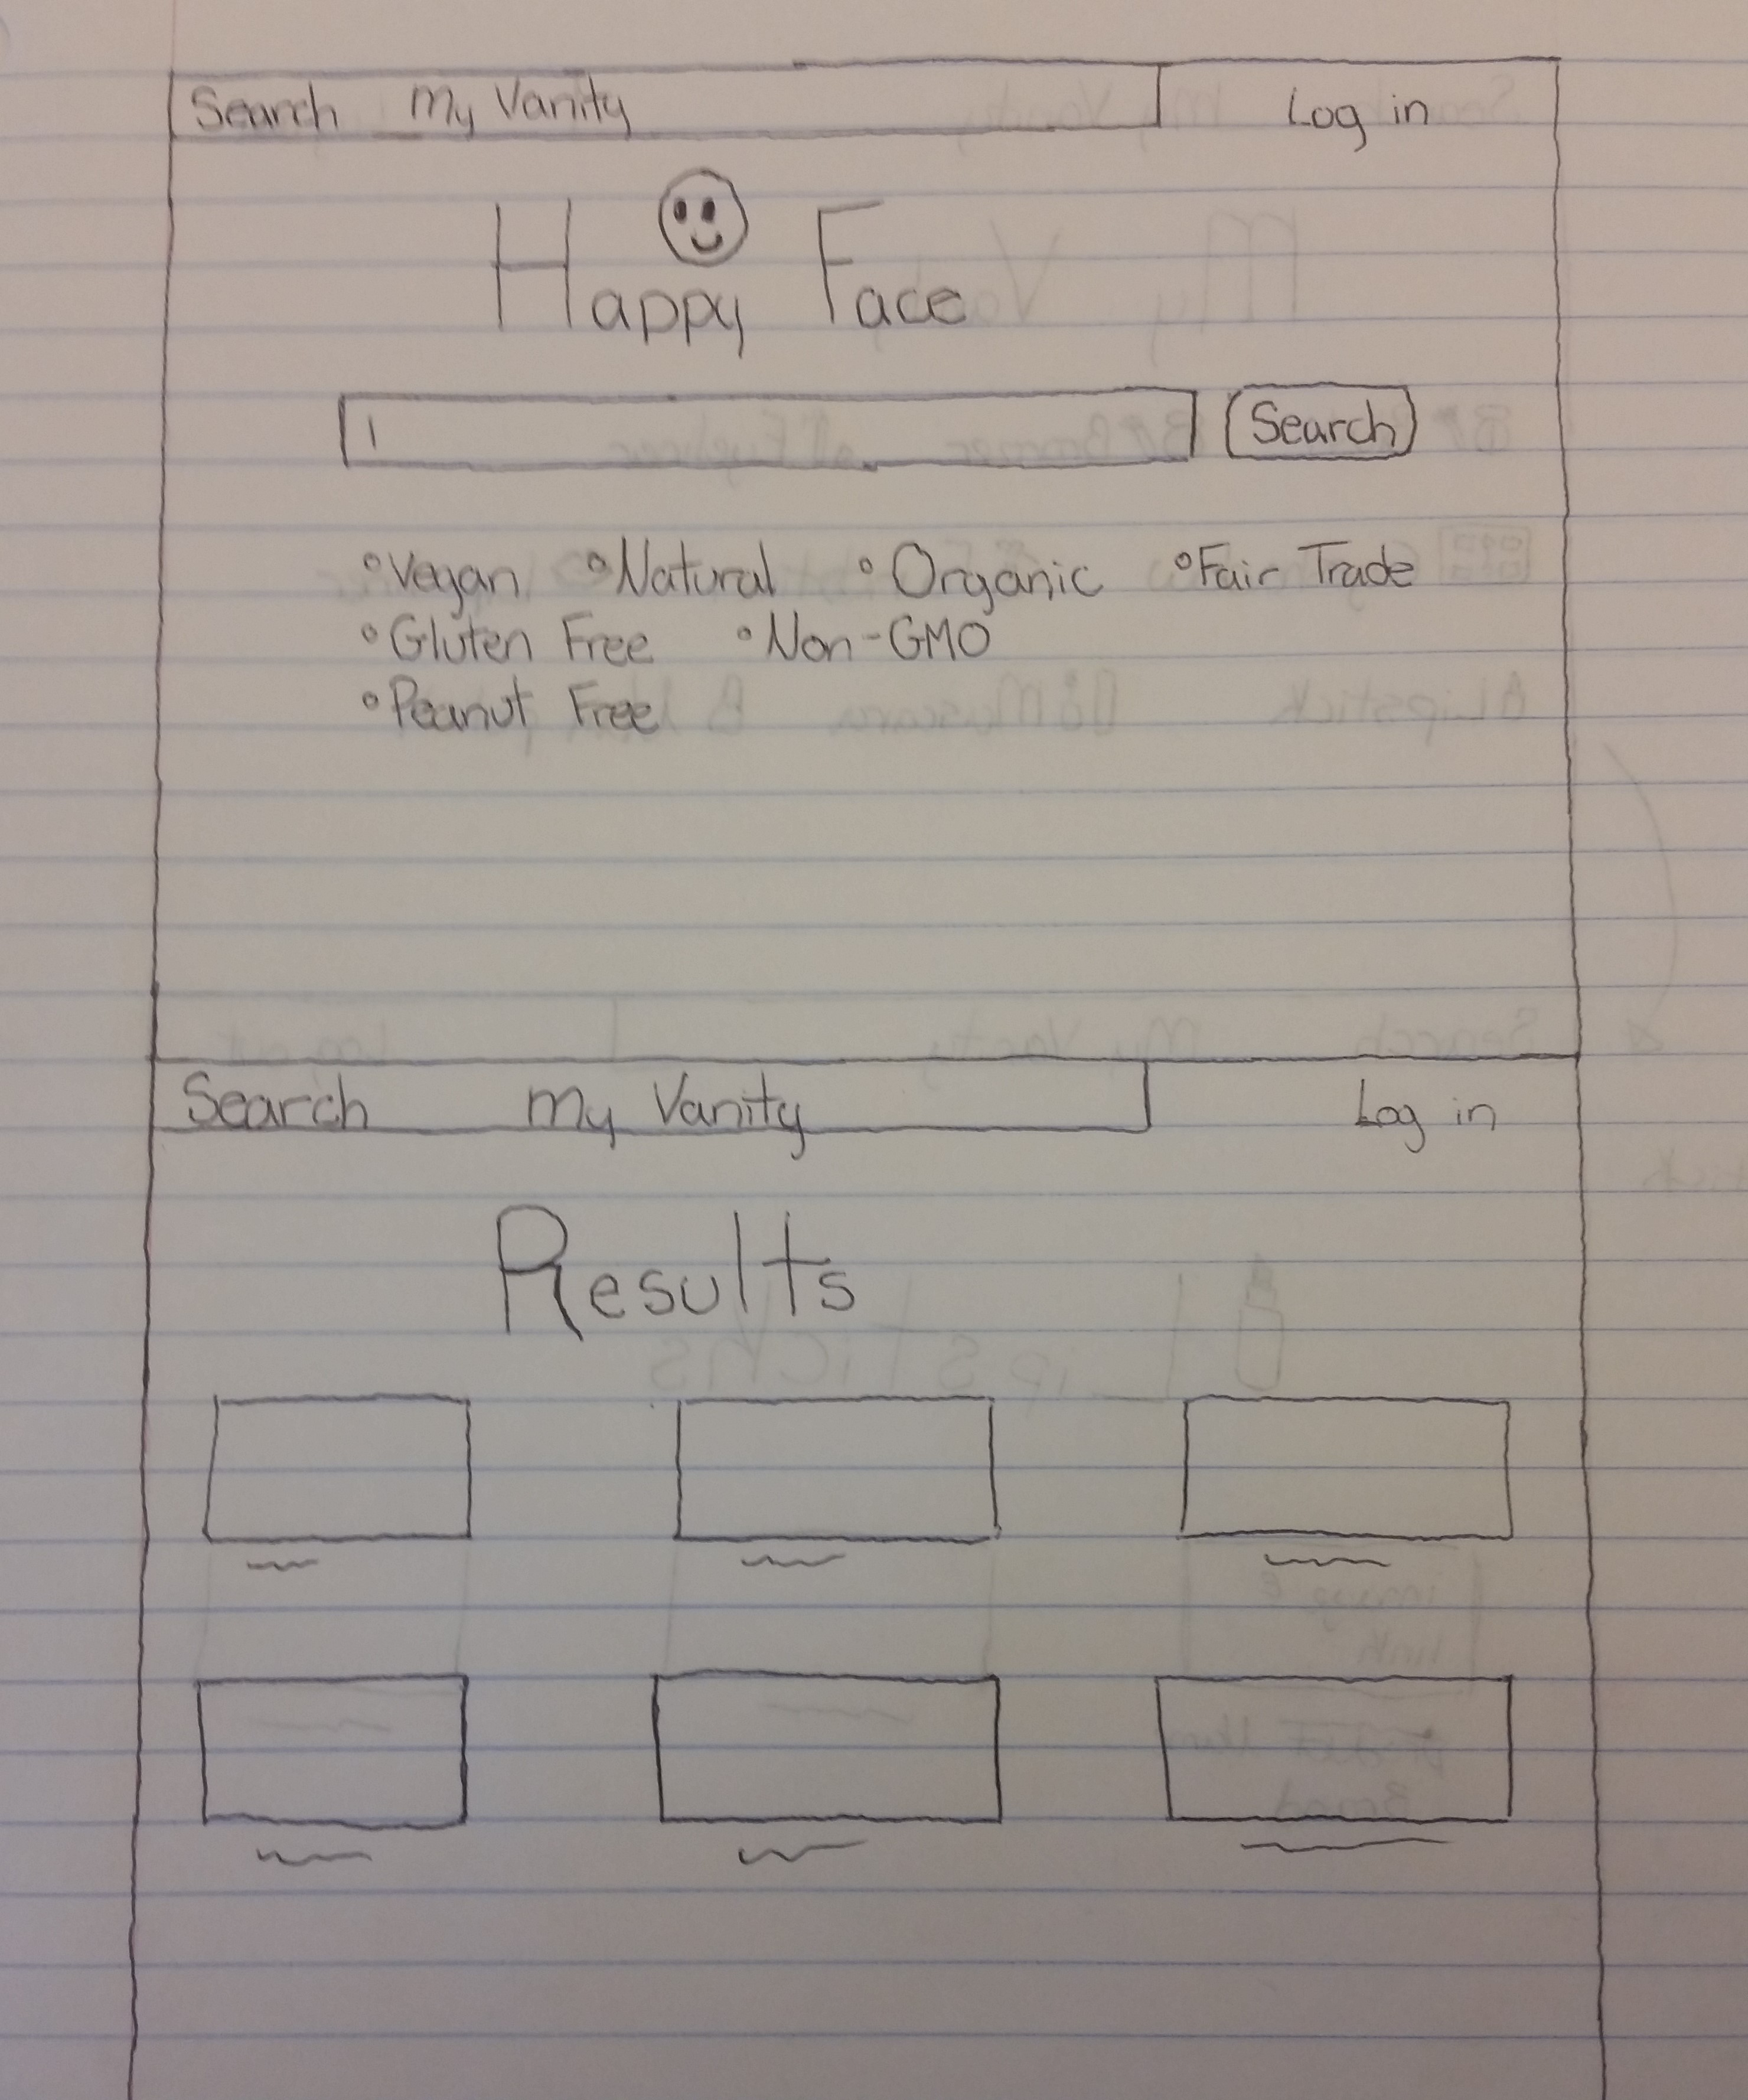 Search My Vanity Log in
Happy Face
Search
Vegan Natural Organic Fair Trade
Gluten Free Non-GMO
Peanut Free
Search My Vanity Log in
Results